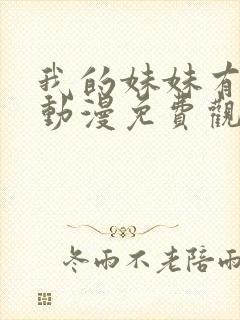 我的妹妹有
動漫免費觀
冬雨不老陪雨